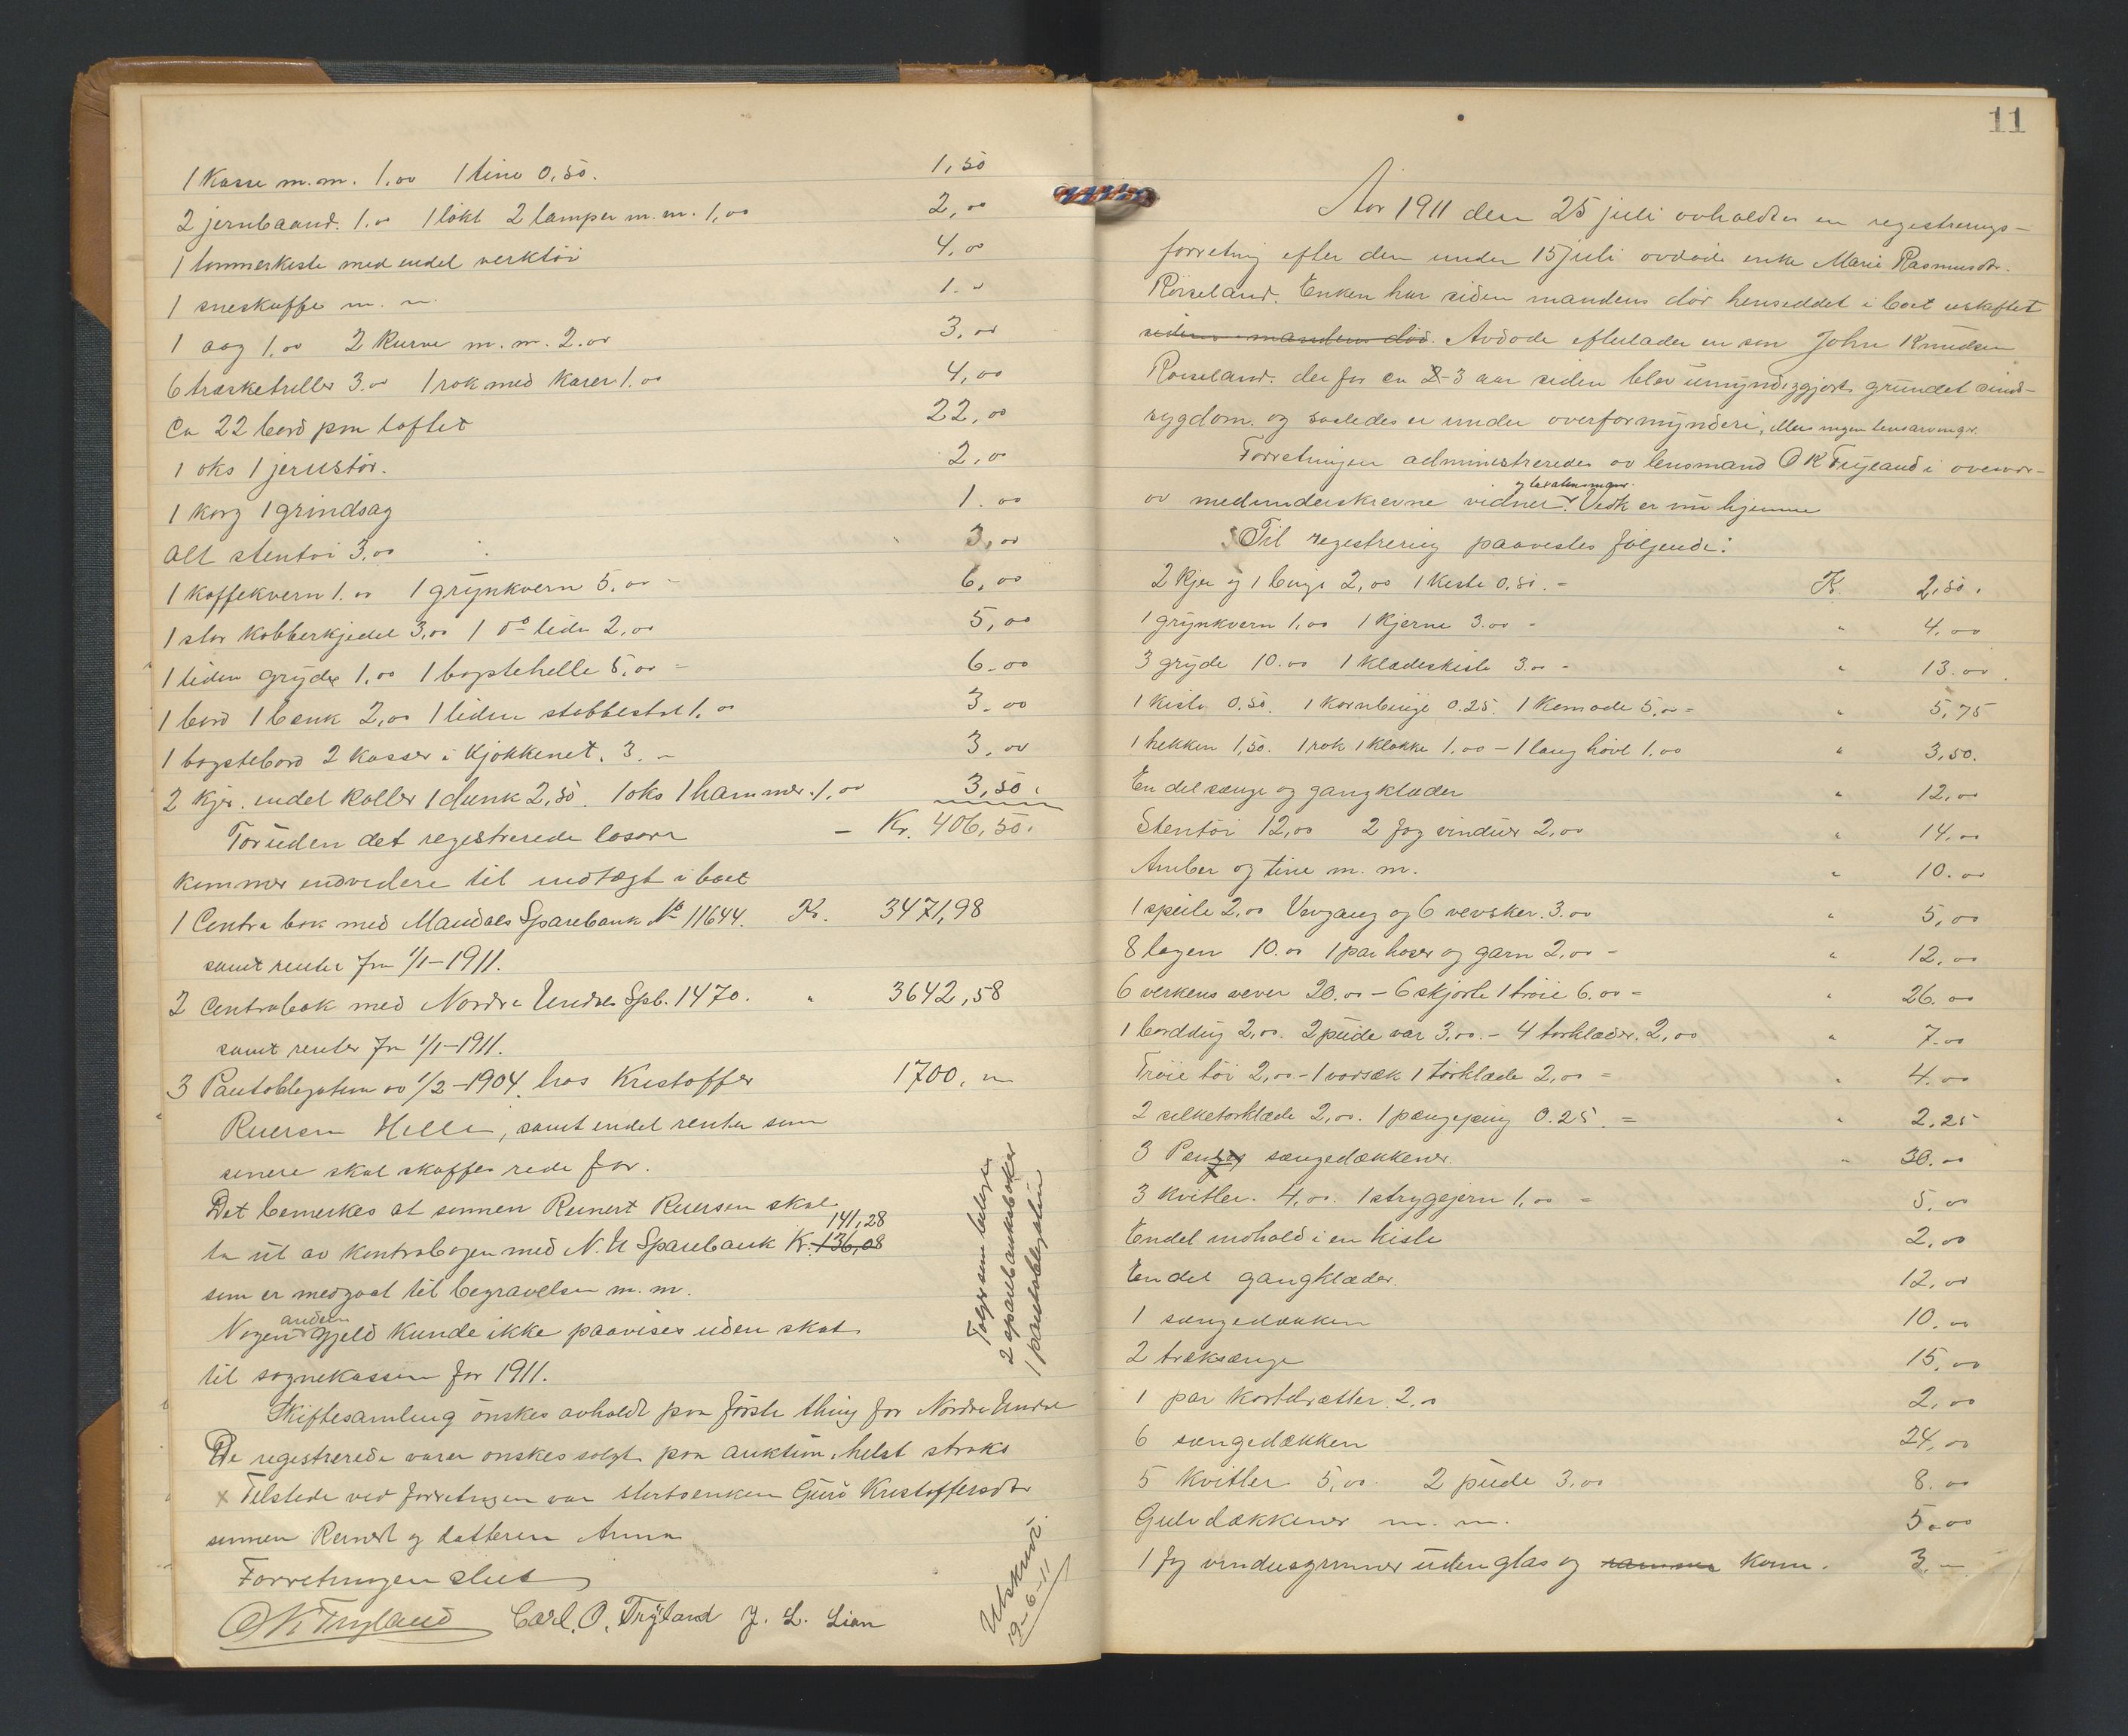 1 Kasse m.m. 1,00 1 tine 0,50. 1,50
2 jernbaand. 1.00 1 lökt 2 lamper m.m. 1,00 2,00
1 tömmerkiste med endel verktöi 4,00
1 sneskuffe m. m. 1.00
1 aag 1,00 2 Kurve m.m. 2.00 3,00
6 træsketriller 3.00 1 rok med Karer 1.00 4,00
Ca 22 bord paa loftet 22,00
1 öks 1 jernstör. 2,00
1 korg 1 grindsag 1.00
Alt stentöi 3,00 3,00
1 Kaffekvern 1.00 1 grynkvern 5,00 - 6,00
1 stor Kobberkjedel 3,00 1 do liden 2,00 5,00
1 liden gryde 1,00 1 bagstehelle 5,00 = 6-00
1 bord 1 benk 2,00 1 liden stabbestol 1,00 3.00
1 bagstebord 2 Kasser i Kjökkenet. 3.- 3,00
2 Kjer. endel Koller 1 dunk 2,50. 1 öks 1 hammer 1,00 3,50.
Foruden det registrerede lösöre - Kr. 406,50.
kommer endvidere til indtægt i boet
1 Contra bok med Mandals Sparebank No 11644. Kr. 3471,98
samt renter fra 1/1-1911.
2 Contrabok med Nordre Undals Spb. 1470. " 3642,58
samt renter fra 1/1-1911.
3 Pantobligation av 1/2-1904. hos Kristoffer 1700,00
Reiersen Helle, samt endel renter som
senere skal skaffes rede for.
Det bemerkes at sönnen Reinert Reiersen skal
141,28
ta ut av kontrabogen med N. U Sparebank Kr. 136,08
som er medgaat til begravelsen m.m.
anden
Nogen Gjeld kunde ikke paavises uden skat
til sognekassen for 1911.
Skiftesamling önskes avholdt paa förste thing for Nordre Undal
De registrerede varer önskes solgt paa auktion, helst straks
x Tilstede ved forretningen var sterboenken Guro Kristoffersdtr
sönnen Reinert og datteren Anna
Forretningen slut
OK Tryland Carl. O. Tryland J. L. Lian
Fölger som bilager
2 sparebankböker
1 pantobligation
Utskrevet.
19-6-11
11
Aar 1911 den 25 juli avholdtes en registrerings-
forretning efter den under 15 juli avdöde enke Marie Rasmusdtr.
Röiseland. Enken har siden mandens död hensiddet i boet uskiftet
siden mandens död. Avdöde efterlader en sön John Knudsen
Röiseland. der for ca 2-3 aar siden blev umyndiggjort grundet sind-
sygdom. og saaledes er under overformynderi, Men ingen livsarvinger.
Forretningen administreredes av lensmand O K Tryland i overvær-
og laxationsmænd.
av medunderskrevne vidner. Vedk er nu hjemme
Til registrering paavistes fölgende:
2 Kjer og 1 binge 2,00 1 Kiste 0.50.- Kr. 2,50.
1 grynkvern 1,00 1 Kjerne 3.00 - " 4,00
3 gryde 10.00 1 Klædeskiste 3.00 - " 13.00
1 Kiste 0.50. 1 Kornbinge 0.25. 1 Komode 5,00 = " 5,75
1 hekken 1,50. 1 rok 1 klokke 1,00 - 1 lang hövl 1.00 " 3,50.
En del senge og gangklæder " 12,00
Stentöi 12,00 2 fag vinduer 2,00 " 14,00
Amber og tine m. m. " 10.00
1 speile 2,00 Vevgang og 6 vevsker. 3.00 " 5,00
8 lagen 10.00 1 par hoser og garn 2,00 - " 12,00
6 verkens vever 20.00 - 6 skjorte 1 tröie 6.00 = " 26.00
1 borddug 2,00. 2 pude var 3,00.- 4 törklæder. 2,00 " 7.00
Tröie töi 2,00 - 1 vadsæk 1 törklæde 2,00 = " 4.00
2 silketörklæde 2,00. 1 pængepung 0.25. = " 2,25
3 sengedækkener. " 30.00
3 kvitler. 4,00. 1 strygejern 1,00 = 5,00
Endel indhold i en kiste 2,00
En del gangklæder. 12,00
1 sengedækken 10.00
2 træksenge 15,00
1 par kortdrætter. 2,00 2,00
6 sengedækken 24,00
5 kvitler 5,00. 2 pude 3,00 8.00
Gulvdækkener m. m. 5.00
1 fag vindusgrinner uden glas og rammer Karm. 3.-